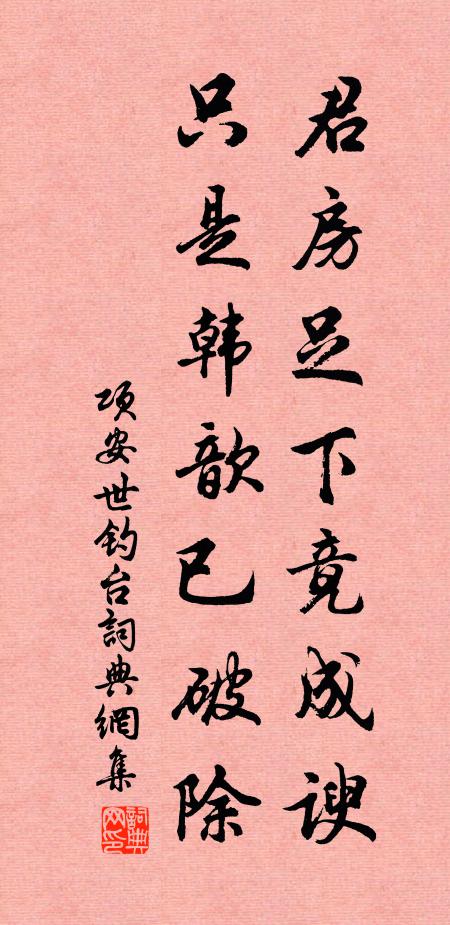 君房足下竟成谀
只是韩歆已破除
项安世钓台詞典網集
詞典网印